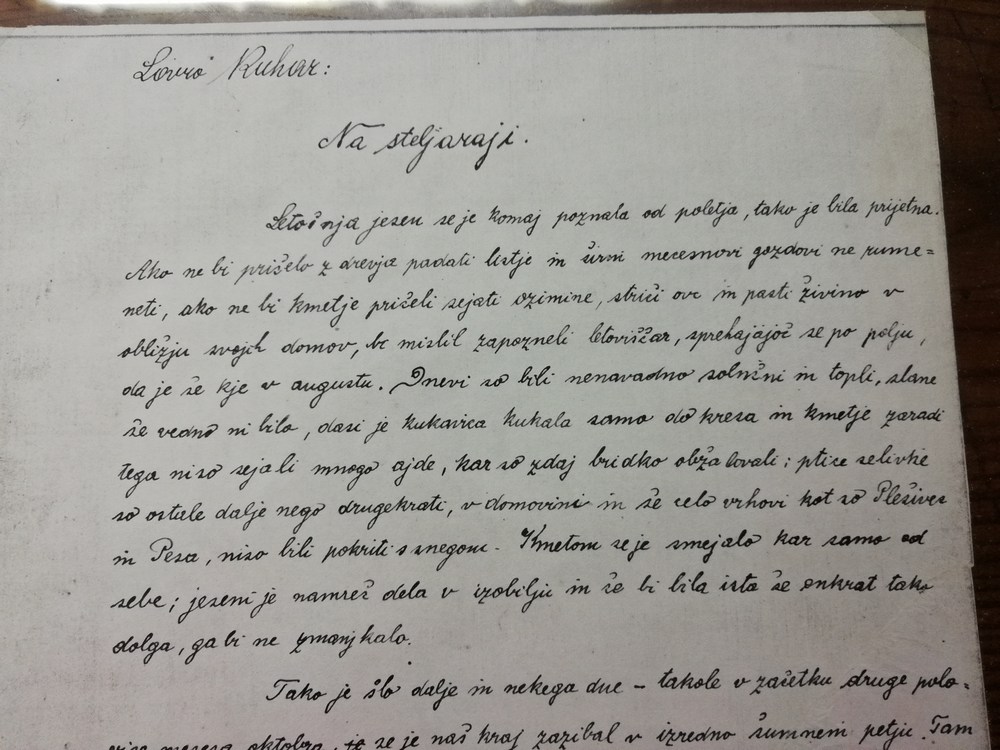 Lovro Kuhar:
Na steljaraji.
Letošnja jesen se je komaj poznala od poletja, tako je bila prijetna.
Ako ne bi prišelo z drevja padati listje in širni mecesnovi gozdovi ne rume=
neti, ako ne bi kmetje prišeli sejati ozimine, strići ovc in pasti živino v
obližju svojih domov, bi mislil zapozneli letoviščar, sprehajajoč se po polju,
da je še kje v augustu. Dnevi so bili nenavadno solnčni in topli, slane
še vedno ni bilo, dasi je kukavica kukala samo do kresa in kmetje zaradi
tega niso sejali mnogo ajde, kar so zdaj bridko obžalovali; ptice selivke
so ostale dalje nego drugekrati, v domovini in še celo vrhovi kot so Plešivec
in Pesa, niso bili pokriti s snegom. Kmetom se je smejalo kar samo od
sebe; jeseni je namreč dela v izobilju in če bi bila ista še enkrat tako
dolga, ga bi ne zmanjkalo.
Tako je šlo dalje in nekega dne – takole v začetku druge polo=
vice meseca oktobra, se je naš kraj zazibal v izredno šumnem petju. Tam